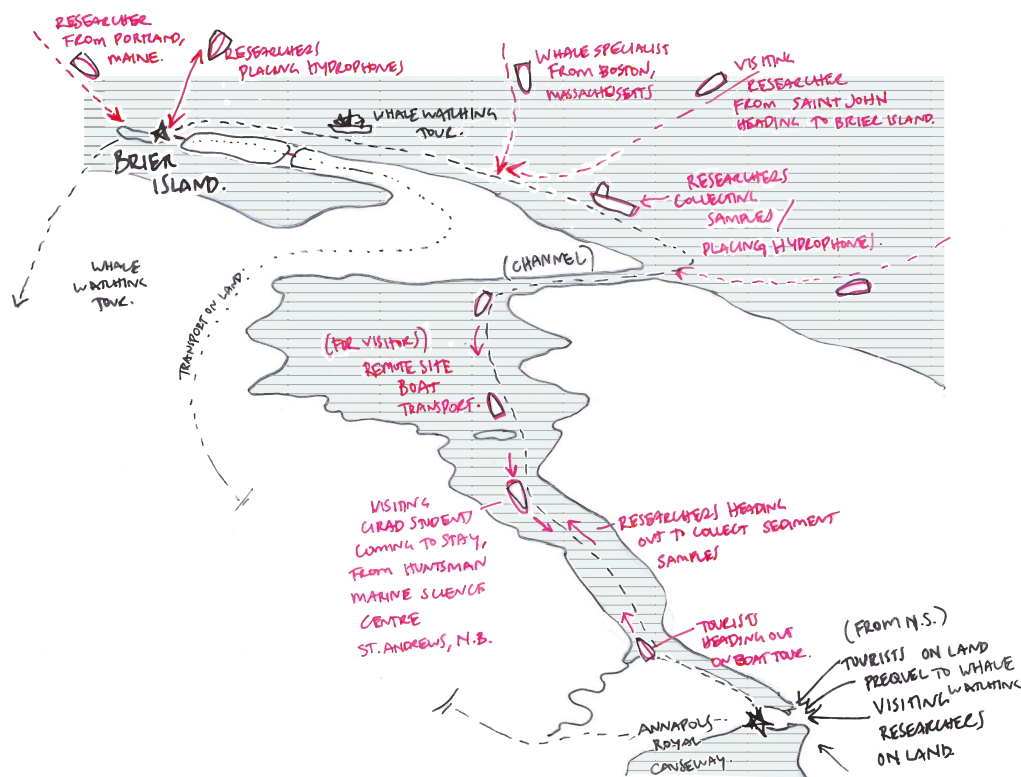 RESEARCHER
FROM PORTLAND,
MAINE.
RESEARCHERS
PLACING HYDROPHONES
WHALE SPECIALIST
FROM BOSTON,
MASSACHUSETTS
VISITING
RESEARCHER
FROM SAINT JOHN
HEADING TO BRIER ISLAND.
WHALE WATCHING
TOUR.
BRIER
ISLAND.
RESEARCHERS
COLLECTING
SAMPLES /
PLACING HYDROPHONES.
WHALE
WATCHING
TOUR.
(CHANNEL)
TRANSPORT ON LAND.
(FOR VISITORS)
REMOTE SITE
BOAT
TRANSPORT.
VISITING
GRAD STUDENTS
COMING TO STAY,
FROM HUNTSMAN
MARINE SCIENCE
CENTRE
ST. ANDREWS, N.B.
RESEARCHERS HEADING
OUT TO COLLECT SEDIMENT
SAMPLES
TOURISTS
HEADING OUT
ON BOAT TOUR.
(FROM N.S.)
TOURISTS ON LAND
PREQUEL TO WHALE
WATCHING
VISITING
RESEARCHERS
ON LAND
ANNAPOLIS
ROYAL
CAUSEWAY.